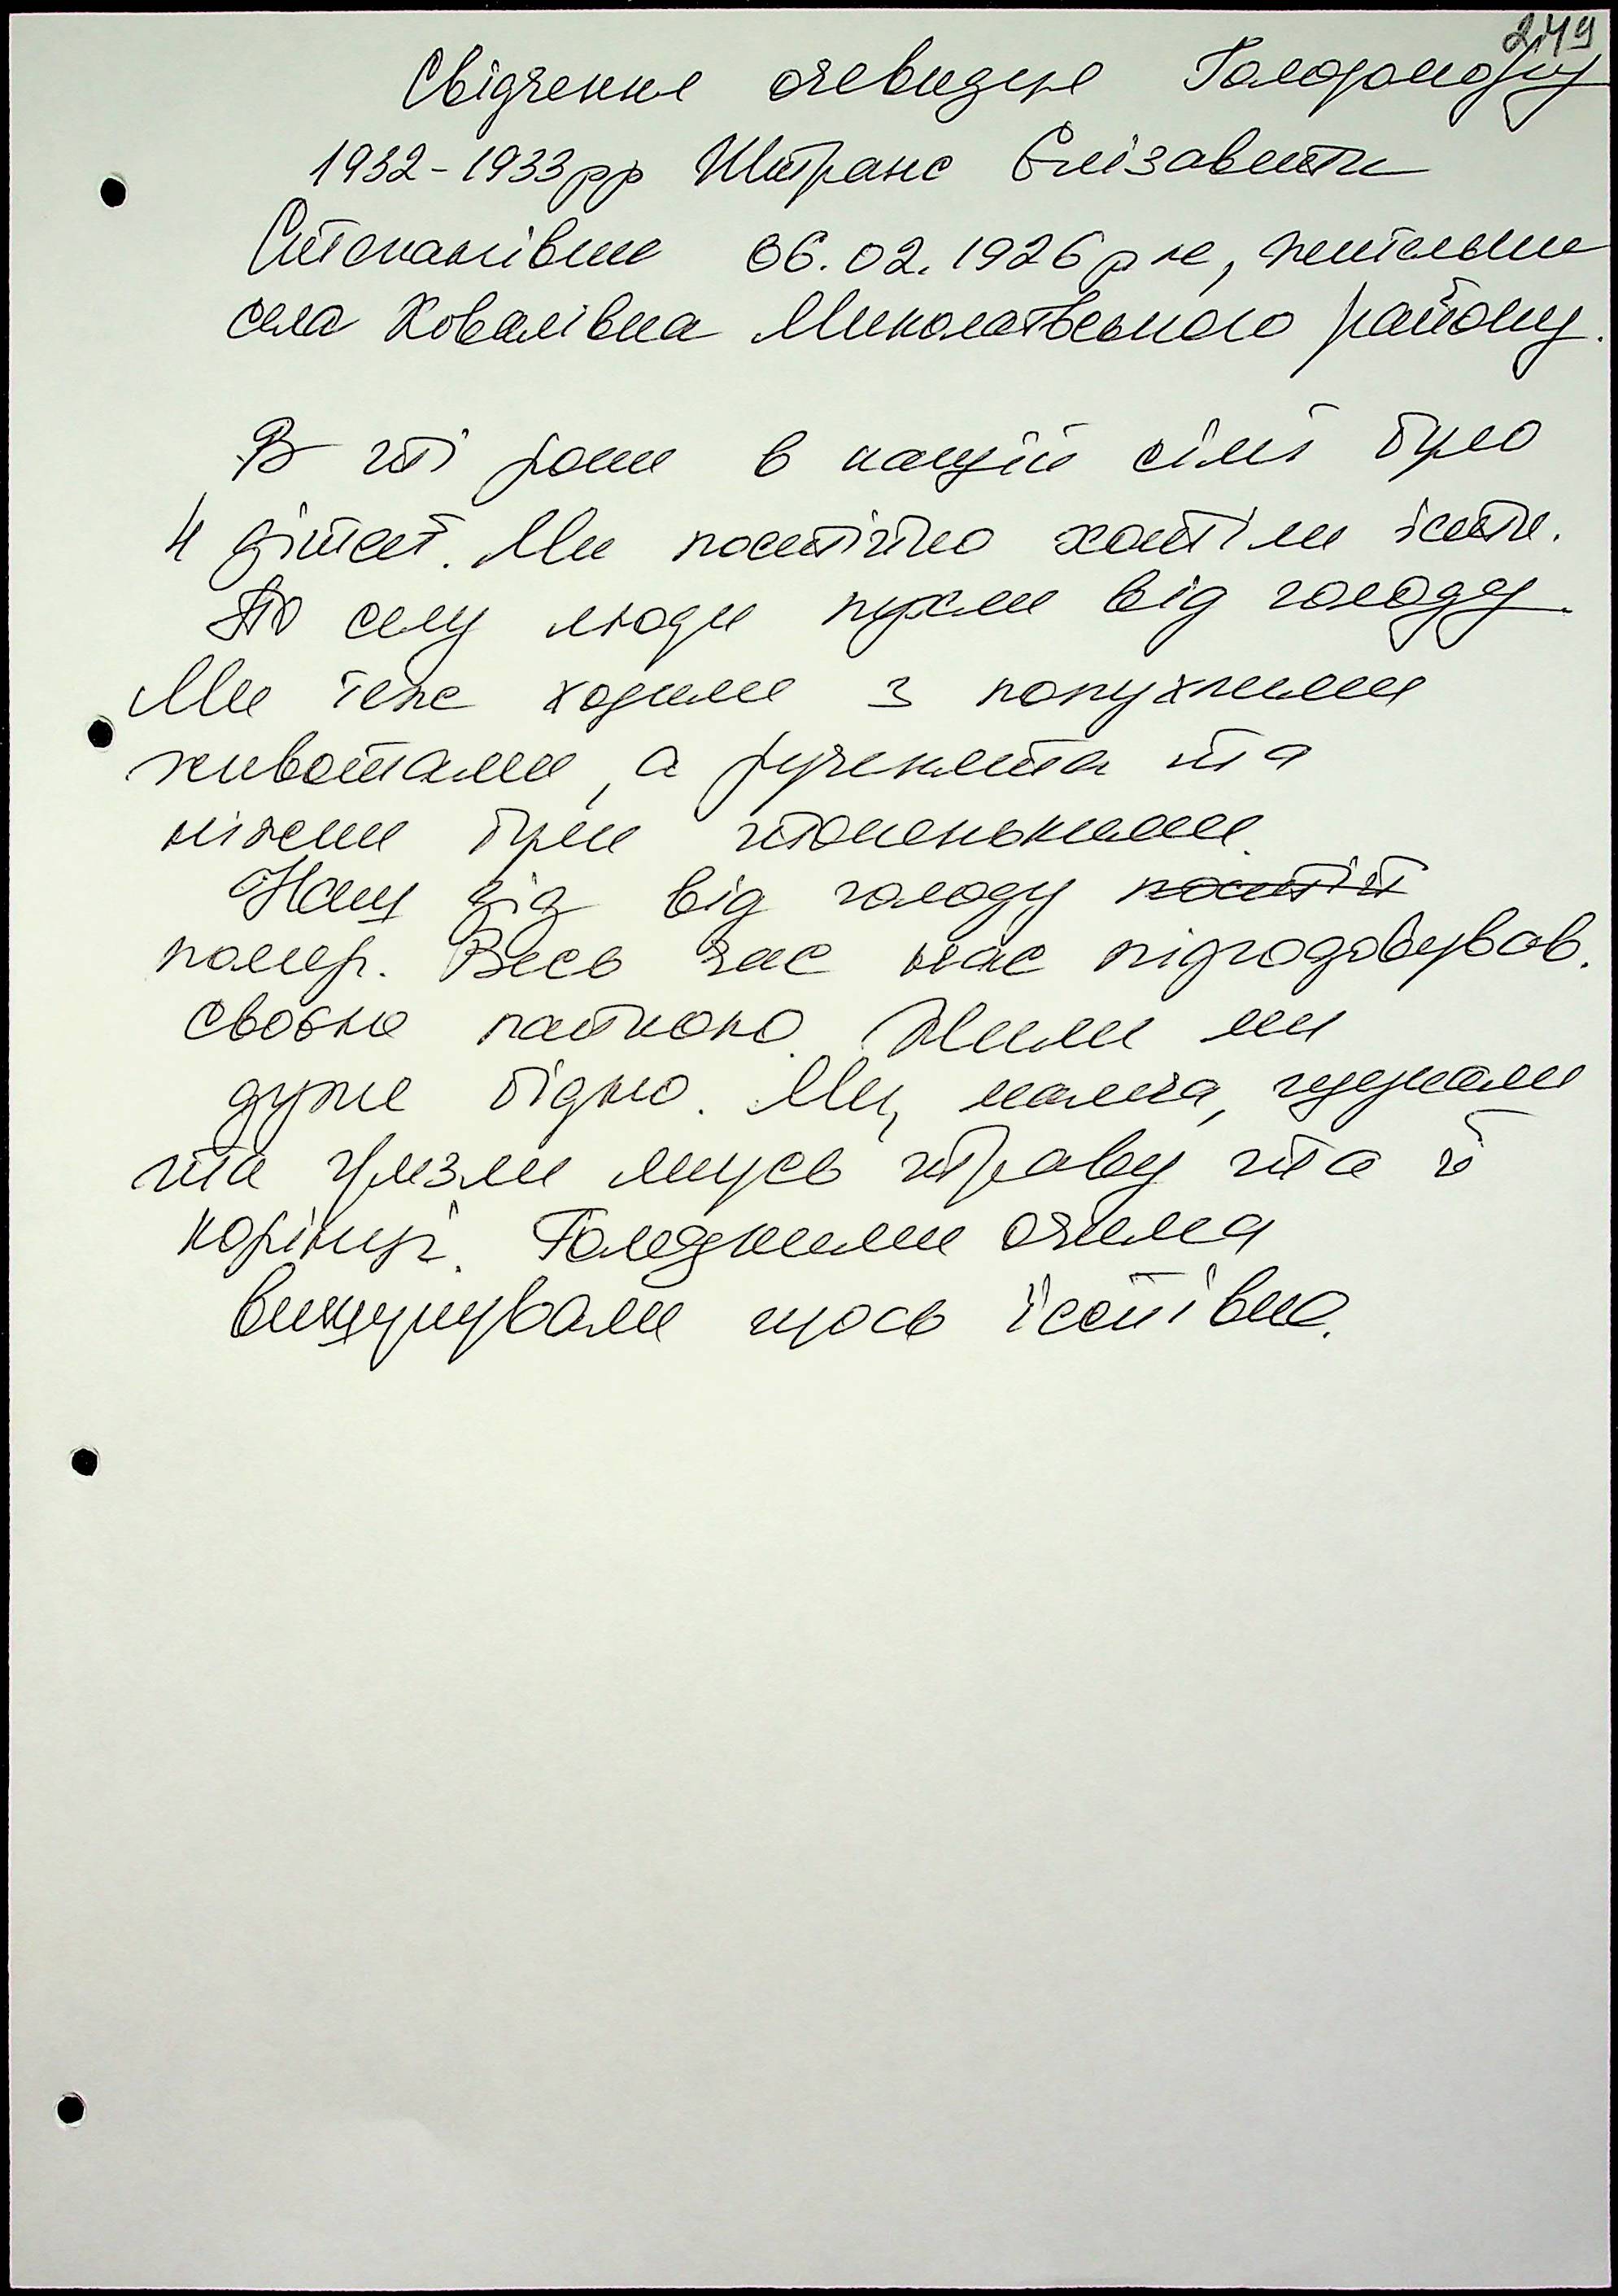 249
Свідчення очевидця Голодомору
1932-1933рр Штранс Єлізавети
Степанівни 06.02.1926 р н, жительки
села Ковалівка Миколаївського району.
В ті роки в нашій сімї було
4 дітей. Ми постійно хотіли їсти.
По селу люди пухли від голоду.
Ми теж ходили з попухлими
животами, а рученята та
ніжки були тоненькими.
Наш дід від голоду постій
помер. Весь час нас підгодовував.
своєю пайкою. Жили ми
дуже бідно. Ми, малеча, шукали
та гризли якусь траву та її
корінці. Голодними очима
вишукували щось їстівне.